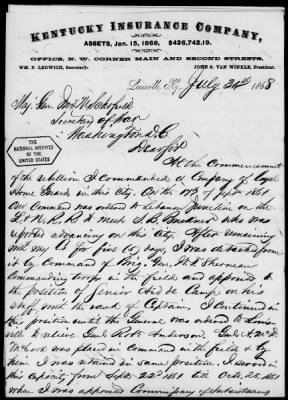 KENTUCKY INSURANCE COMPANY,
ASSETS, Jan. 15, 1868, $426,742.19.
OFFICE, N. W. CORNER MAIN AND SECOND STREETS.
WM. F. LEDWICH, Secretary. JOHN S. VAN WINKLE, President.
Louisville, Ky., July 24th 1868
Maj Gen Jno M Schofield
Secretary of War
Washington D.C.
Dear Sir
THE NATIONAL
ARCHIVES
OF THE
UNITED STATES
At the Commencement
of the rebellion I commanded a Company of Loyal
Home Guards in this city. On the 17th of Sept 1861
Our Command was ordered to Lebanon Junction on the
L & N. R. R. to meet S. B. Buckner who was
reported advancing on this city. After remaining
with my Co for five (5) days, I was detached from
it by Command of Brig Gen W. T. Sherman
commanding troops in the field and appointed to
the position of Senior Aid de Camp on his
staff with the rank of Captain, I continued in
this position until the General was ordered to Louis-
ville to relieve Genl Robt Anderson. Genl A. McD.
McCook was placed in command in the field & by
him I was retained in same position. I served in
this capacity from Sept 22nd 1861 till Octo 25, 1861
when I was appointed Commissary of Subsistence